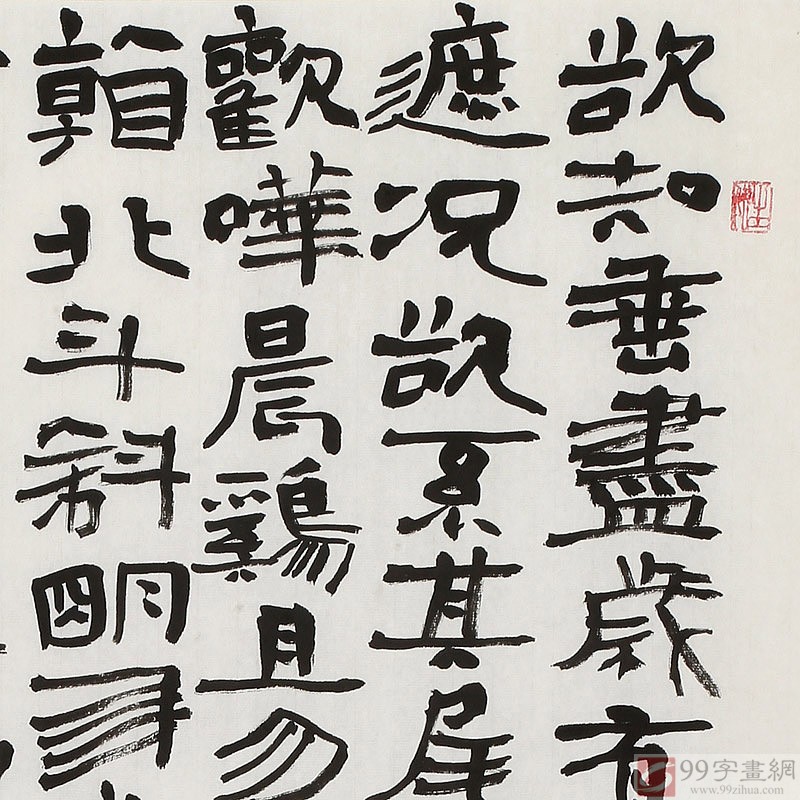 欲知垂盡歲有
遮况欲系其尾
歡嘩晨鷄且勿
看北斗斜明年
99字畫網
www.99zihua.com